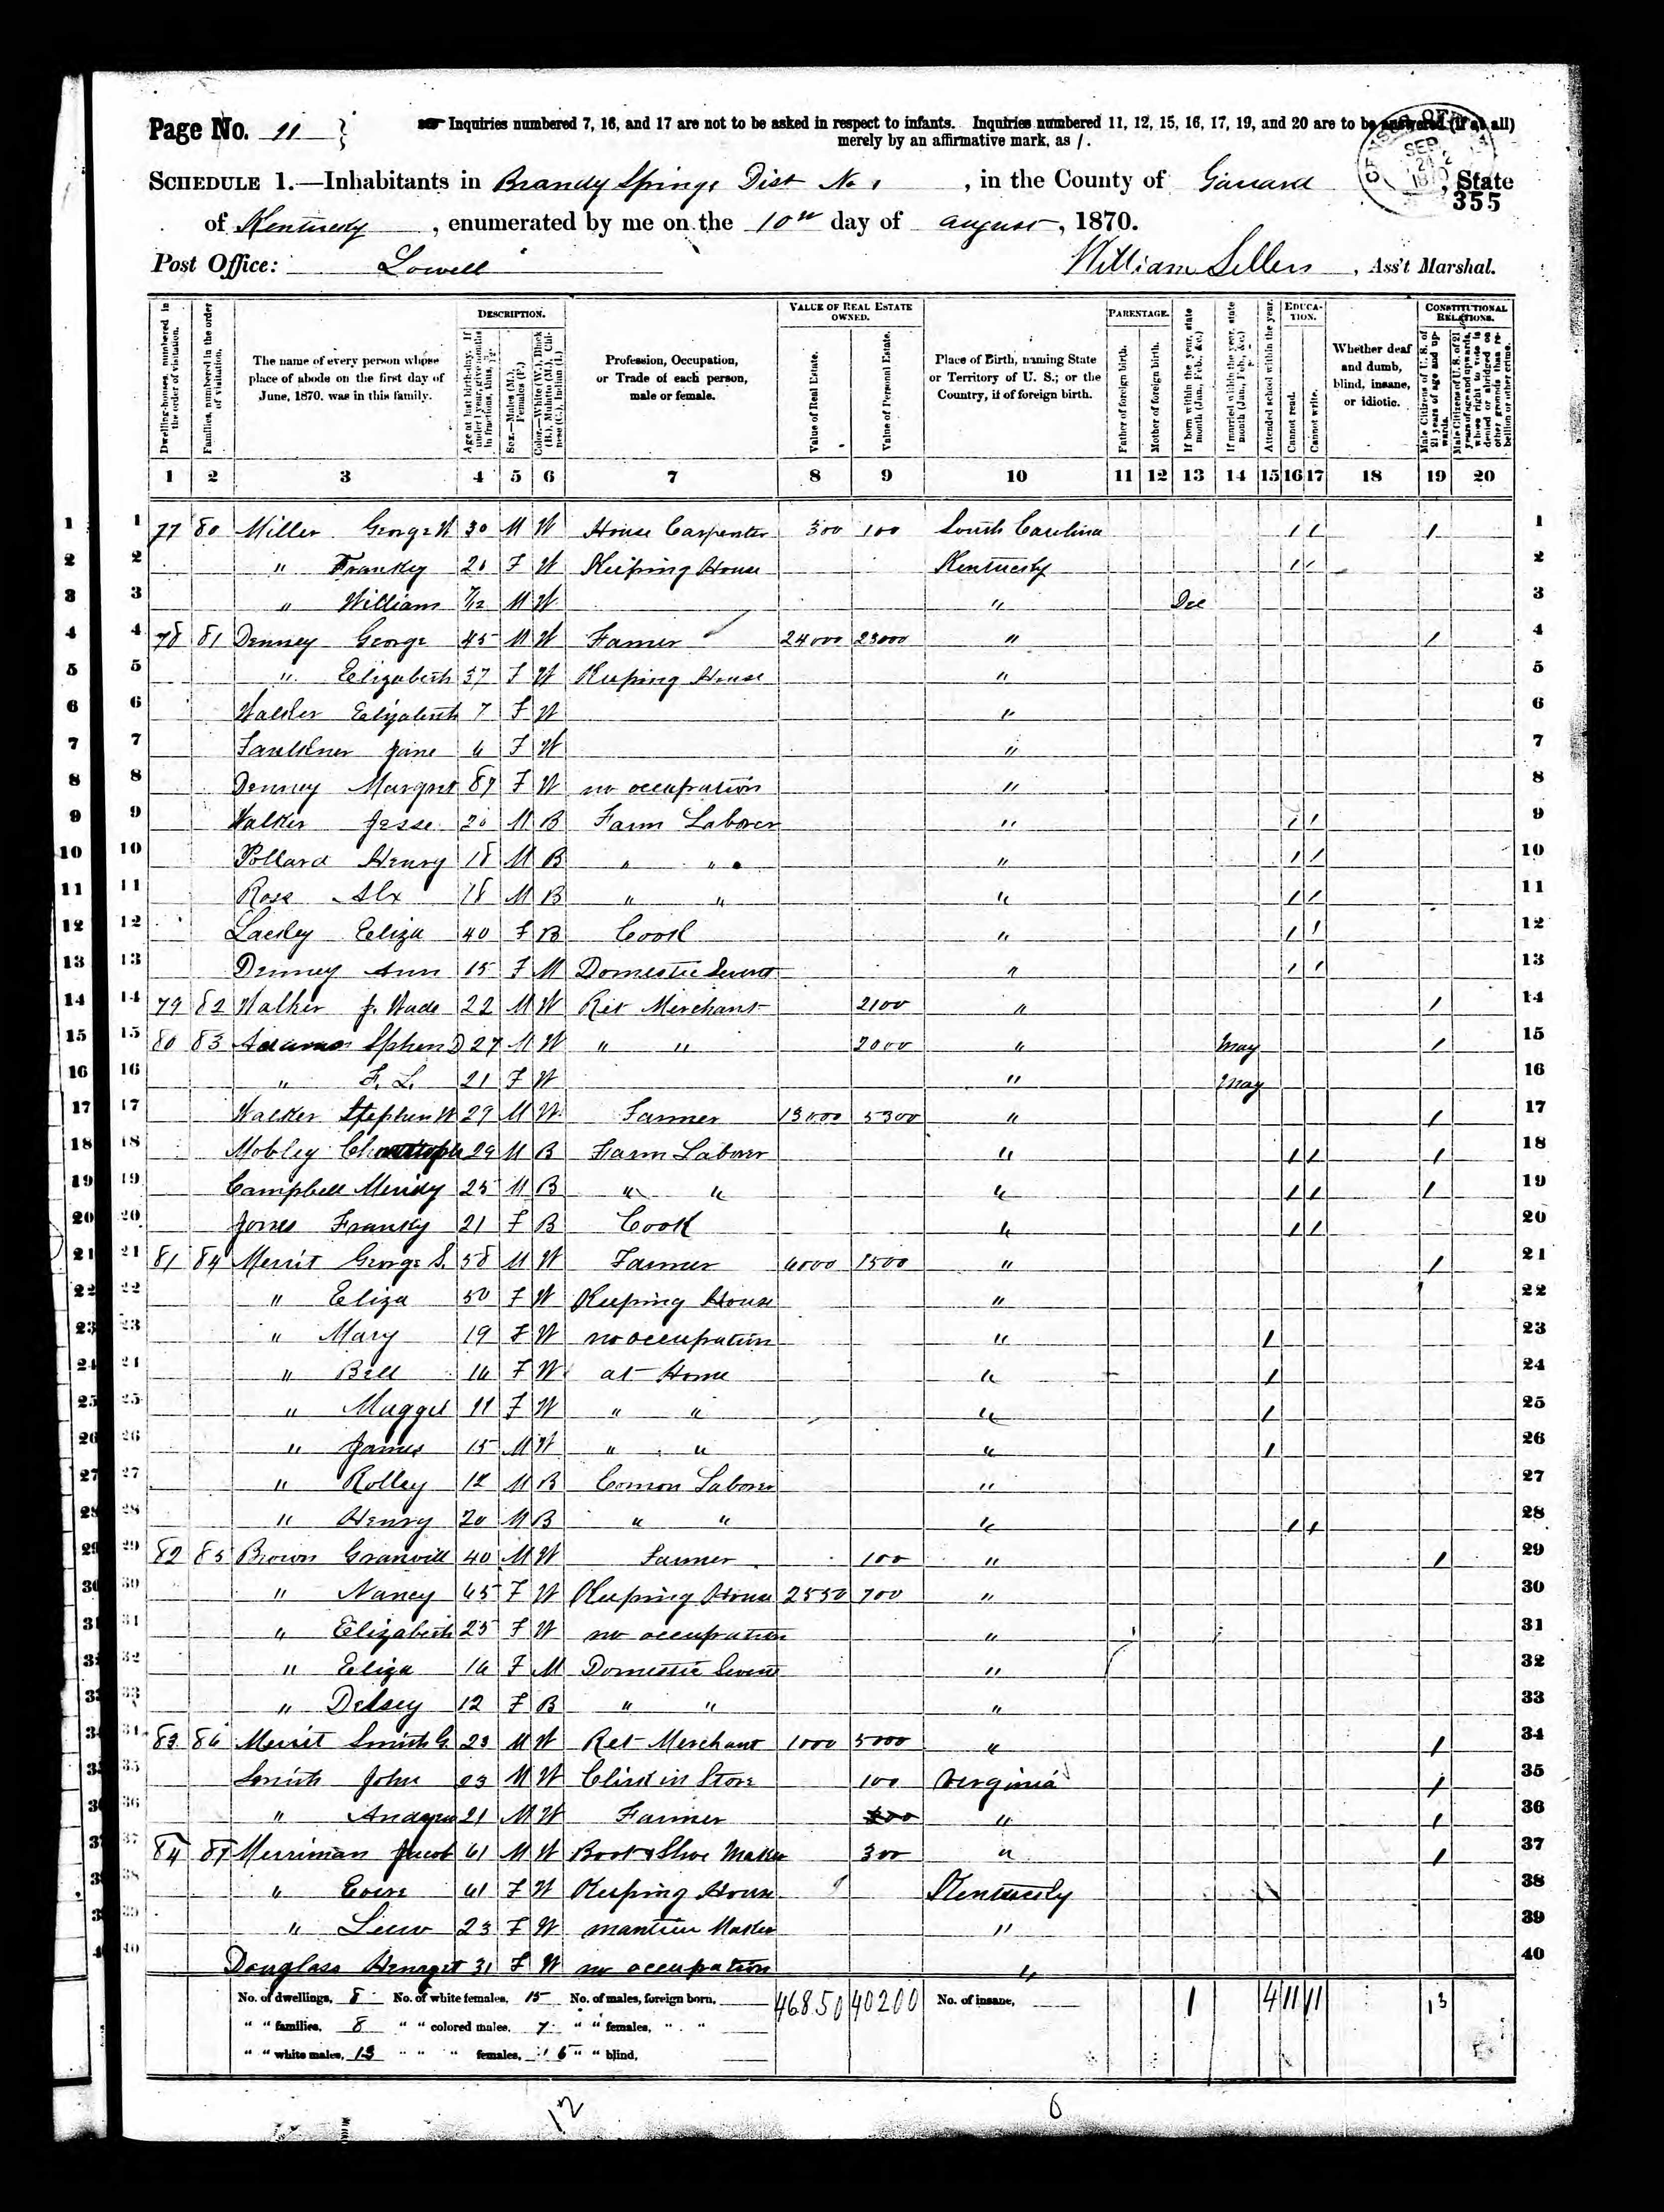 Page No. 11
Inquiries numbered 7, 16, and 17 are not to be asked in respect to infants. Inquiries numbered 11, 12, 15, 16, 17, 19, and 20 are to be answered (if at all)
merely by an affirmative mark, as /.
SCHEDULE 1.—Inhabitants in Brandy Springs Dist No 1, in the County of Garrard, State
355
of Kentucky, enumerated by me on the 10th day of August, 1870.
Post Office: Lowell William Sellers, Ass't Marshal.
DESCRIPTION. VALUE OF REAL ESTATE OWNED. PARENTAGE. EDUCATION. CONSTITUTIONAL RELATIONS.
Dwelling-houses, numbered in the order of visitation.
Families, numbered in the order of visitation.
The name of every person whose place of abode on the first day of June, 1870, was in this family.
Age at last birth-day. If under 1 year, give months in fractions, thus, 3/12
Sex.—Males (M.), Females (F.)
Color.—White (W.), Black (B.), Mulatto (M.), Chinese (C.), Indian (I.)
Profession, Occupation, or Trade of each person, male or female.
Value of Real Estate.
Value of Personal Estate.
Place of Birth, naming State or Territory of U. S.; or the Country, if of foreign birth.
Father of foreign birth.
Mother of foreign birth.
If born within the year, state month (Jan., Feb., &c.)
If married within the year, state month (Jan., Feb., &c.)
Attended school within the year.
Cannot read.
Cannot write.
Whether deaf and dumb, blind, insane, or idiotic.
Male Citizens of U. S. of 21 years of age and upwards.
Male Citizens of U. S. of 21 years of age and upwards, whose right to vote is denied or abridged on other grounds than rebellion or other crime.
1 2 3 4 5 6 7 8 9 10 11 12 13 14 15 16 17 18 19 20
1 77 80 Miller George W 30 M W House Carpenter 300 100 South Carolina / / / 1
2 " Franky F W Keeping House Kentucky / / 2
3 " William 7/12 M W " Dec 3
4 78 81 Denney George 45 M W Farmer 24000 23000 " / 4
5 " Elizabeth 37 F W Keeping House " 5
6 Walker Elizabeth 7 F W " 6
7 Faulkner Jane 6 F W " 7
8 Denney Margret 87 F W no occupation " 8
9 Walker Jesse M B Farm Laborer " / / 9
10 Pollard Henry 18 M B " " " / / 10
11 Ross Alx 18 M B " " " / / 11
12 Lackey Eliza 40 F B Cook " / / 12
13 Denney Ann 15 F M Domestic Servant " / / 13
14 79 82 Walker J. Wade 22 M W Ret Merchant 2100 " / 14
15 80 83 Adams Sphen D 27 M W " " 2000 " May / 15
16 " F. L. 21 F W " May 16
17 Walker Stephen W 29 M W Farmer 13000 5300 " / 17
18 Mobley 29 M B Farm Laborer " / / / 18
19 Campbell Meridy 25 M B " " " / / / 19
20 Jones Franky 21 F B Cook " / / 20
21 81 84 Merrit George S. 58 M W Farmer 6000 1500 " / 21
22 " Eliza 50 F W Keeping House " 22
23 " Mary 19 F W no occupation " / 23
24 " Bell 16 F W at Home " / 24
25 " Magget 11 F W " " " / 25
26 " James 15 M W " " " / 26
27 " Rolley 12 M B Comon Laborer " 27
28 " Henry 20 M B " " " / / 28
29 82 85 Brown Granvill 40 M W Farmer 100 " / 29
30 " Nancy 65 F W Keeping House 2550 700 " 30
31 " Elizabeth 25 F W no occupation " 31
32 " Eliza 16 F M Domestic Servant " 32
33 " Delsey 12 F B " " " 33
34 83 86 Merrit Smith G. 23 M W Ret Merchant 1000 5000 " / 34
35 Smith John 23 M W Clerk in Store 100 Virginia / 35
36 " Andrew 21 M W Farmer " / 36
37 84 87 Merriman Jacob 61 M W Boot & Shoe Maker 300 " / 37
38 " 61 F W Keeping House Kentucky 38
39 " 23 F W Maker " 39
40 Douglass 31 F W no occupation " 40
No. of dwellings, 8 No. of white females, 15 No. of males, foreign born, 46850 40200 No. of insane, 1 4 11 11 13
" " families, 8 " " colored males, 7 " " females, " "
" " white males, 13 " " " females, 6 " " blind,
12 6